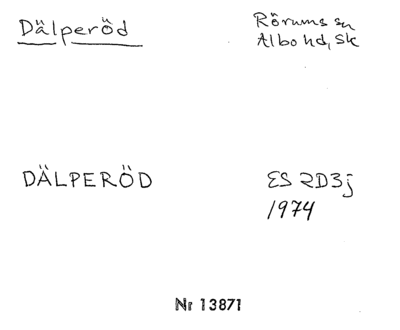 Dälperöd
Rörums sn
Albo hd, Sk
DÄLPERÖD
ES 2D3j
1974
Nr 13871